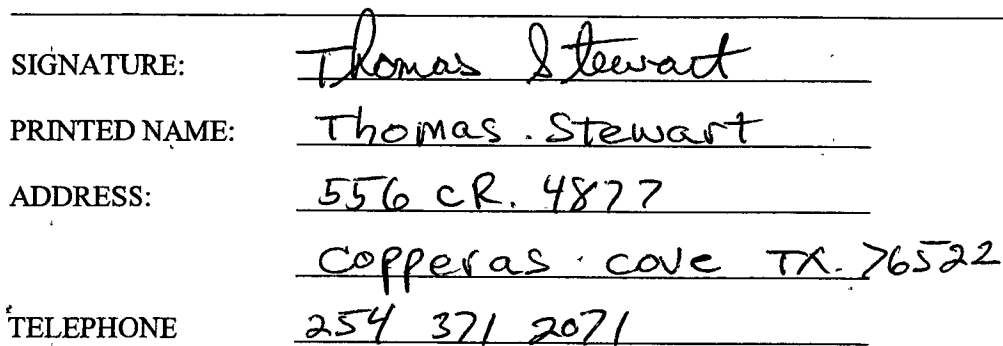 SIGNATURE: Thomas Stewart
PRINTED NAME: Thomas. Stewart
ADDRESS: 556 CR. 4877
Copperas. cove TX. 76522
TELEPHONE 254 371 2071